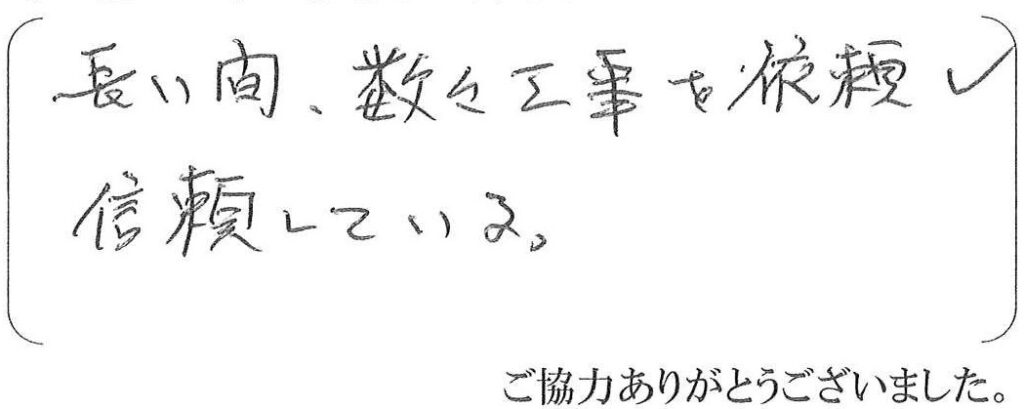 長い間、数々工事を依頼し
信頼している。
ご協力ありがとうございました。